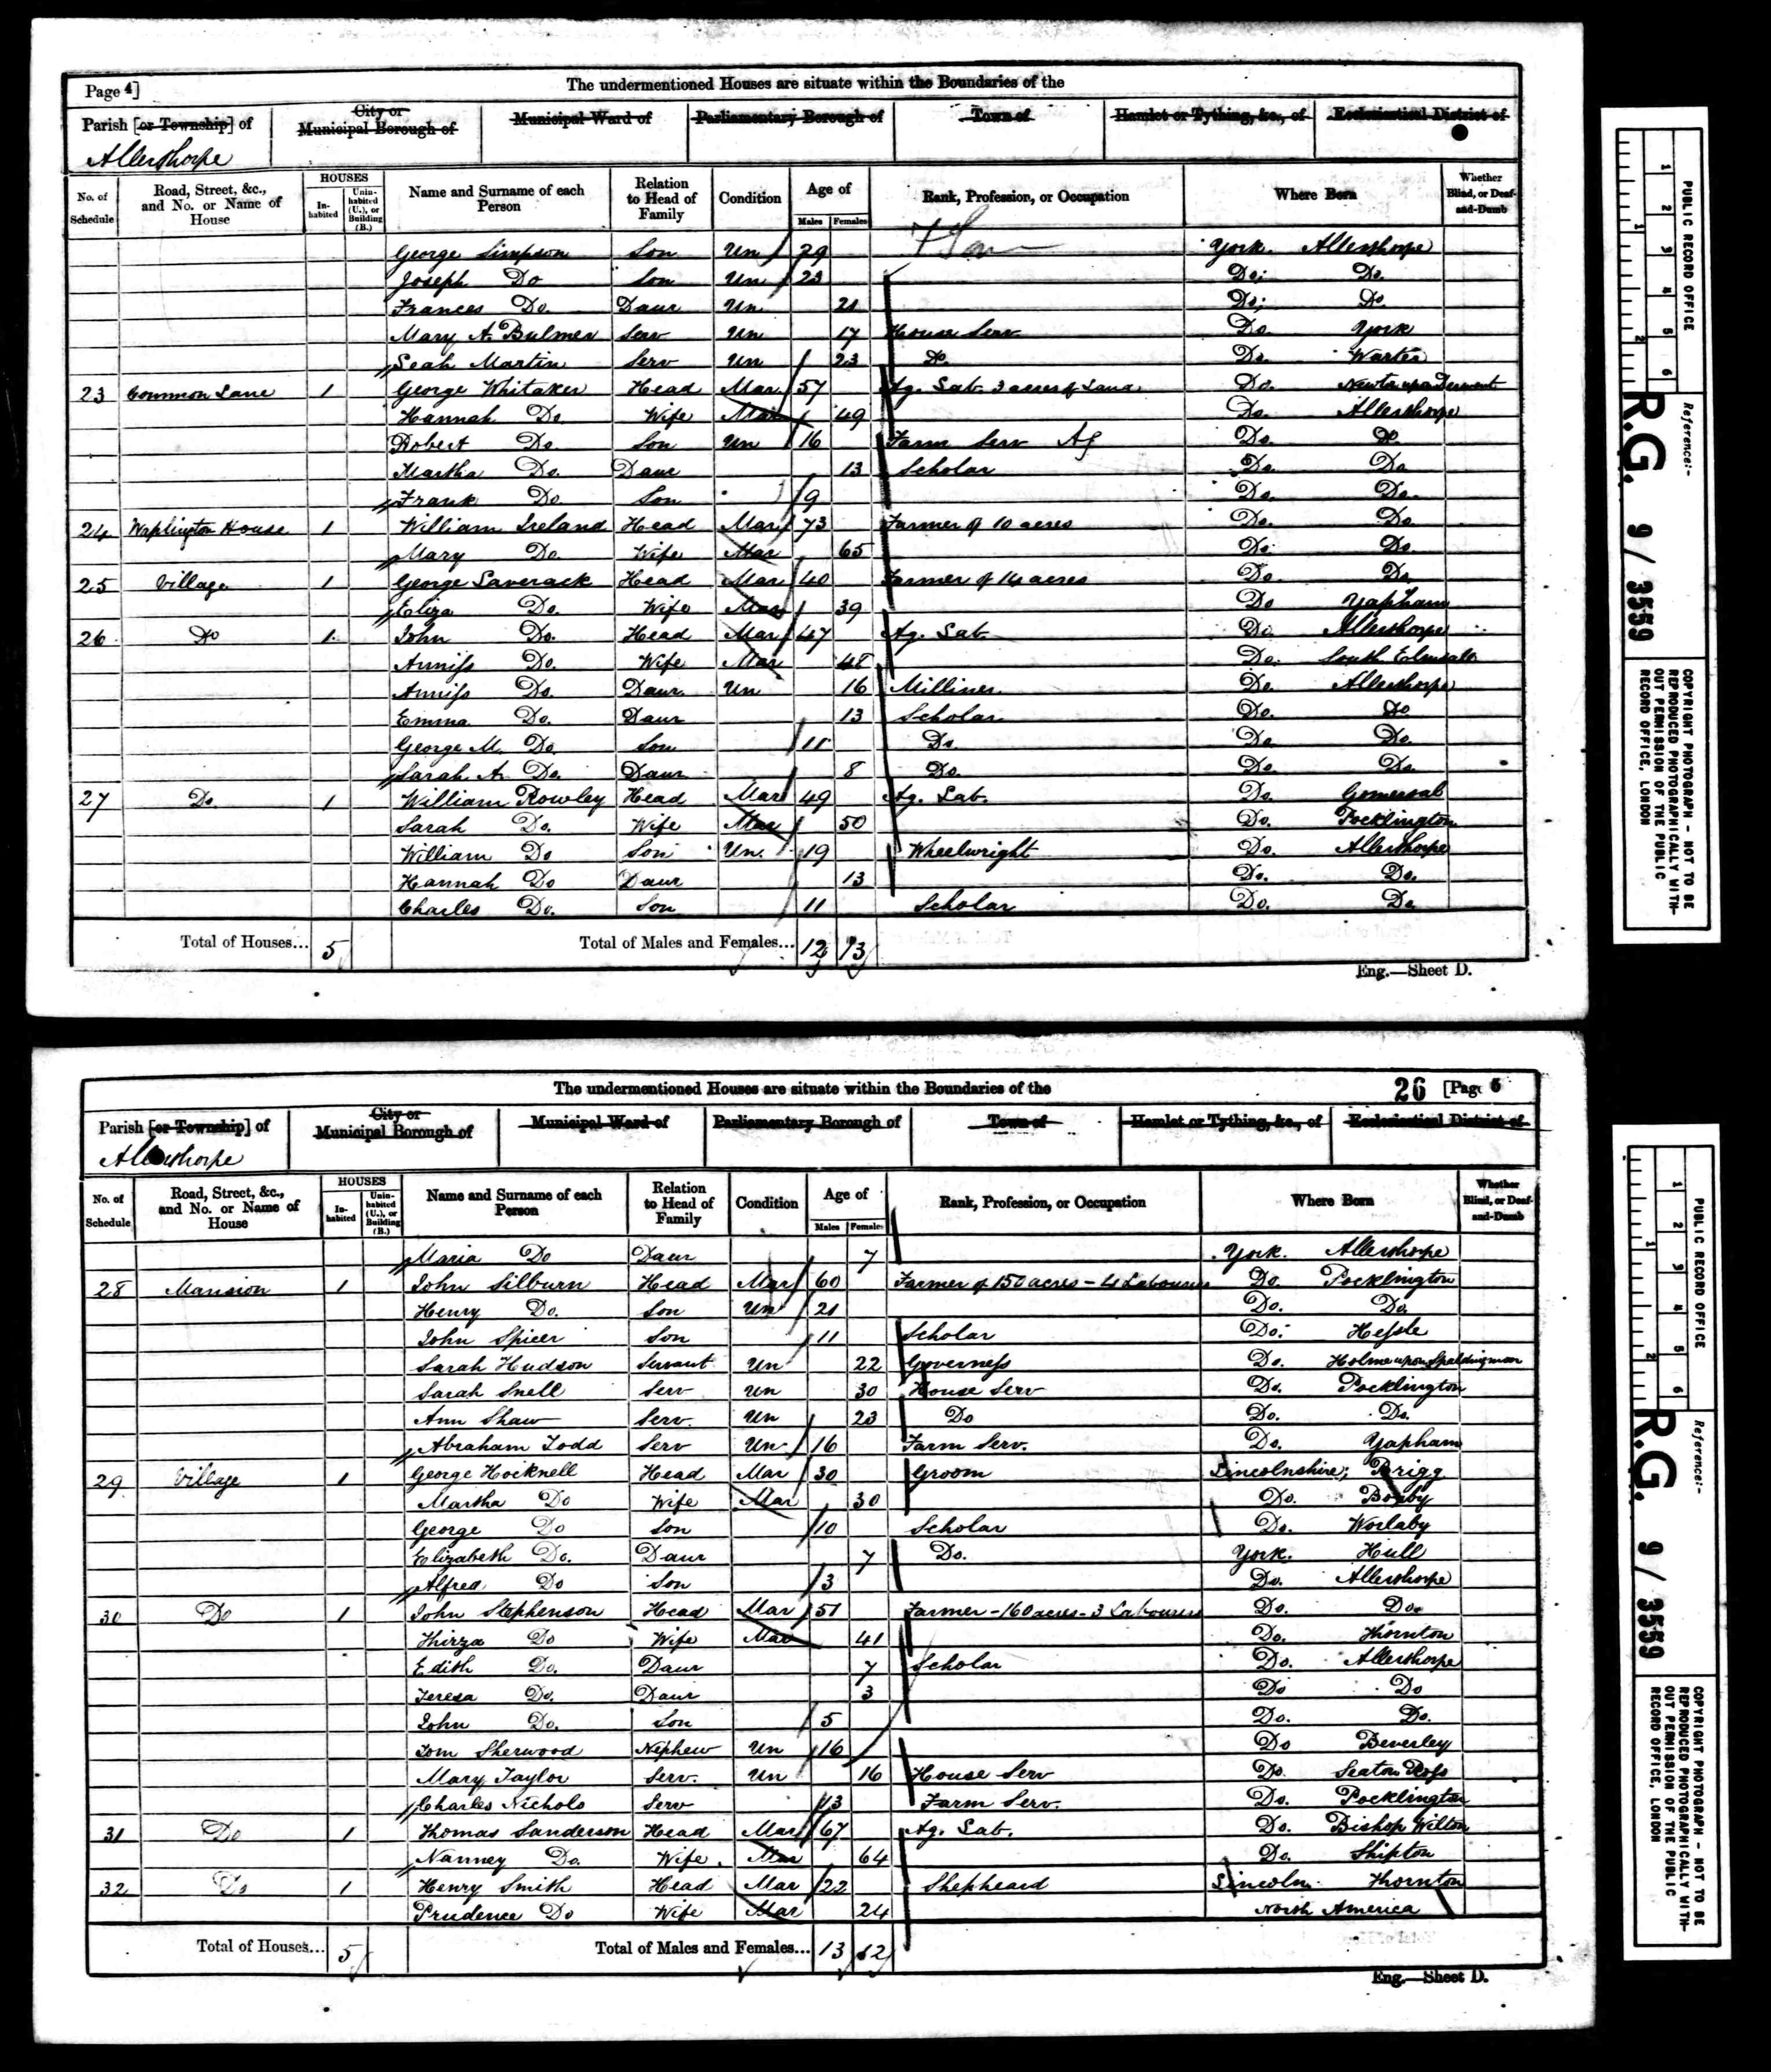 The undermentioned Houses are situate within the Boundaries of the
Page 4]
Parish [or Township] of
Allerthorpe
City or
Municipal Borough of
Municipal Ward of
Parliamentary Borough of
Town of
Hamlet or Tything, &c., of
Ecclesiastical District of
No. of Schedule
Road, Street, &c., and No. or Name of House
HOUSES
In-habited
Unin-habited (U.), or Building (B.)
Name and Surname of each Person
Relation to Head of Family
Condition
Age of
Males
Females
Rank, Profession, or Occupation
Where Born
Whether Blind, or Deaf-and-Dumb
George Simpson Son Un 29 York Allerthorpe
Joseph Do Son Un 23 Do. Do.
Frances Do. Daur Un 21 Do. Do
Mary A. Bulmer Serv Un 17 House Serv Do. York
Leah Martin Serv Un 23 Do. Do. Warter
23 Common Lane 1 George Whitaker Head Mar 57 Ag. Lab. 3 acres of Land Do. Newton upon Derwent
Hannah Do. Wife Mar 49 Do. Allerthorpe
Robert Do Son Un 16 Farm Serv Do. Do.
Martha Do. Daur 13 Scholar Do. Do
Frank Do Son 9 Do. Do.
24 Waplington House 1 William Ireland Head Mar 73 Farmer of 10 acres Do. Do.
Mary Do. Wife Mar 65 Do. Do.
25 Village 1 George Laverack Head Mar 40 Farmer of 14 acres Do. Do
Eliza Do. Wife Mar 39 Do Yapham
26 Do 1 John Do. Head Mar 47 Ag. Lab. Do. Allerthorpe
Anniss Do. Wife Mar 48 Do. South Elmsall
Anniss Do. Daur Un 16 Milliner Do. Allerthorpe
Emma Do. Daur 13 Scholar Do. Do
George M. Do. Son 11 Do. Do. Do.
Sarah A. Do. Daur 8 Do. Do. Do.
27 Do 1 William Rowley Head Mar 49 Ag. Lab. Do. Gomersal
Sarah Do. Wife Mar 50 Do. Pocklington
William Do Son Un. 19 Wheelwright Do. Allerthorpe
Hannah Do Daur 13 Do. Do.
Charles Do. Son 11 Scholar Do. Do
Total of Houses... 5
Total of Males and Females... 12 13
Eng.—Sheet D.
PUBLIC RECORD OFFICE
Reference:-
R.G. 9/3559
COPYRIGHT PHOTOGRAPH - NOT TO BE REPRODUCED PHOTOGRAPHICALLY WITHOUT PERMISSION OF THE PUBLIC RECORD OFFICE, LONDON
The undermentioned Houses are situate within the Boundaries of the
26 [Page 5
Parish [or Township] of
Allerthorpe
City or
Municipal Borough of
Municipal Ward of
Parliamentary Borough of
Town of
Hamlet or Tything, &c., of
Ecclesiastical District of
No. of Schedule
Road, Street, &c., and No. or Name of House
HOUSES
In-habited
Unin-habited (U.), or Building (B.)
Name and Surname of each Person
Relation to Head of Family
Condition
Age of
Males
Females
Rank, Profession, or Occupation
Where Born
Whether Blind, or Deaf-and-Dumb
Maria Do Daur 7 York. Allerthorpe
28 Mansion 1 John Silburn Head Mar 60 Farmer of 150 acres - 4 Labourers Do. Pocklington
Henry Do. Son Un 21 Do. Do.
John Spicer Son 11 Scholar Do. Hessle
Sarah Hudson Servant Un 22 Governess Do. Holme upon Spaldingmoor
Sarah Snell Serv Un 30 House Serv Do. Pocklington
Ann Shaw Serv. Un 23 Do Do. Do.
Abraham Todd Serv Un 16 Farm Serv. Do. Yapham
29 Village 1 George Hocknell Head Mar 30 Groom Lincolnshire; Brigg
Martha Do Wife Mar 30 Do. Bonby
George Do Son 10 Scholar Do. Worlaby
Elizabeth Do. Daur 7 Do. York. Hull
Alfred Do Son 3 Do. Allerthorpe
30 Do 1 John Stephenson Head Mar 51 Farmer - 160 acres - 3 Labourers Do. Do.
Thirza Do Wife Mar 41 Do. Thornton
Edith Do. Daur 7 Scholar Do. Allerthorpe
Teresa Do. Daur 3 Do Do
John Do. Son 5 Do. Do.
Tom Sherwood Nephew Un 16 Do Beverley
Mary Taylor Serv. Un 16 House Serv Do. Seaton Ross
Charles Nichols Serv 13 Farm Serv. Do. Pocklington
31 Do 1 Thomas Sanderson Head Mar 67 Ag. Lab. Do. Bishop Wilton
Nanney Do. Wife. Mar 64 Do. Shipton
32 Do 1 Henry Smith Head Mar 22 Shepheard Lincoln Thornton
Prudence Do Wife Mar 24 North America
Total of Houses... 5
Total of Males and Females... 13 12
Eng.—Sheet D.
PUBLIC RECORD OFFICE
Reference:-
R.G. 9/3559
COPYRIGHT PHOTOGRAPH - NOT TO BE REPRODUCED PHOTOGRAPHICALLY WITHOUT PERMISSION OF THE PUBLIC RECORD OFFICE, LONDON